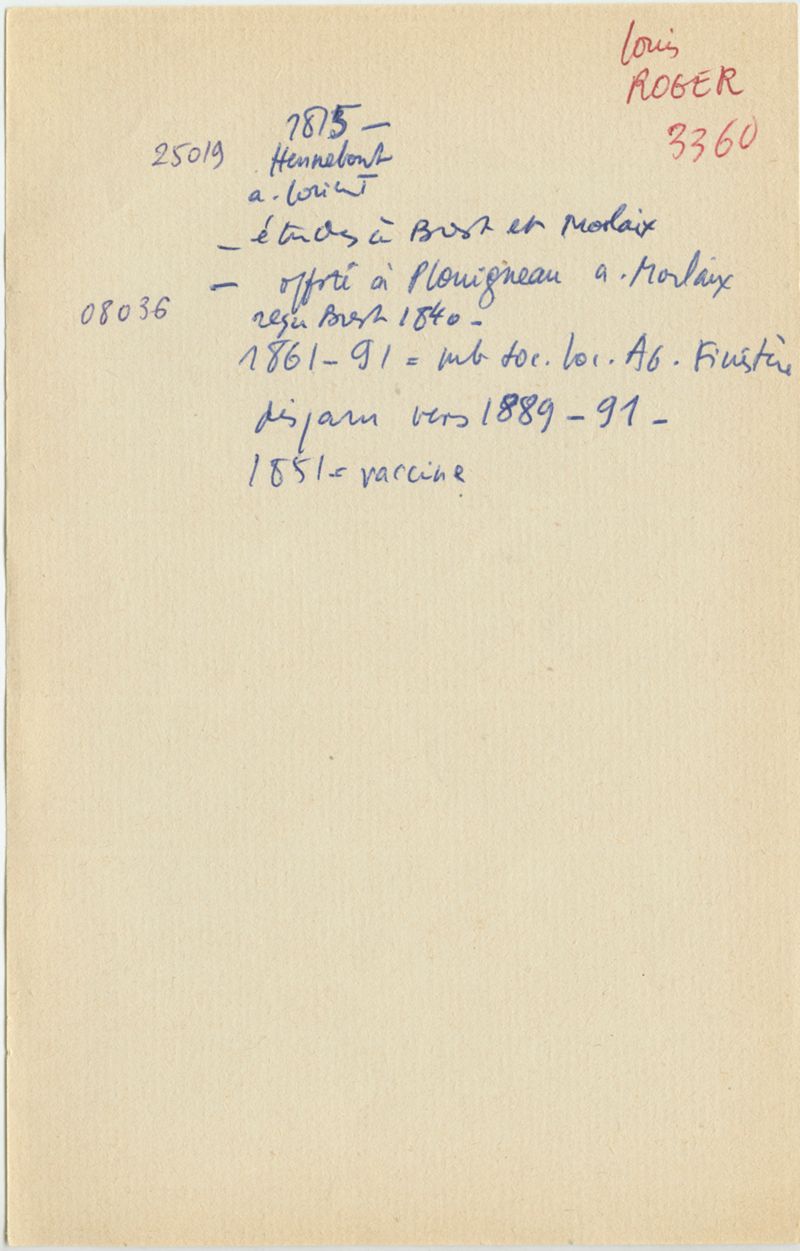 Louis
ROGER
3360
1815 -
25019 Hennebont
a. Lorient
- études à Brest et Morlaix
- offsté à Plouigneau a. Morlaix
08036 reçu Brest 1840 -
1861-91 = mb soc. loc. AG. Finistère
disparu vers 1889-91 -
1851 = vaccine